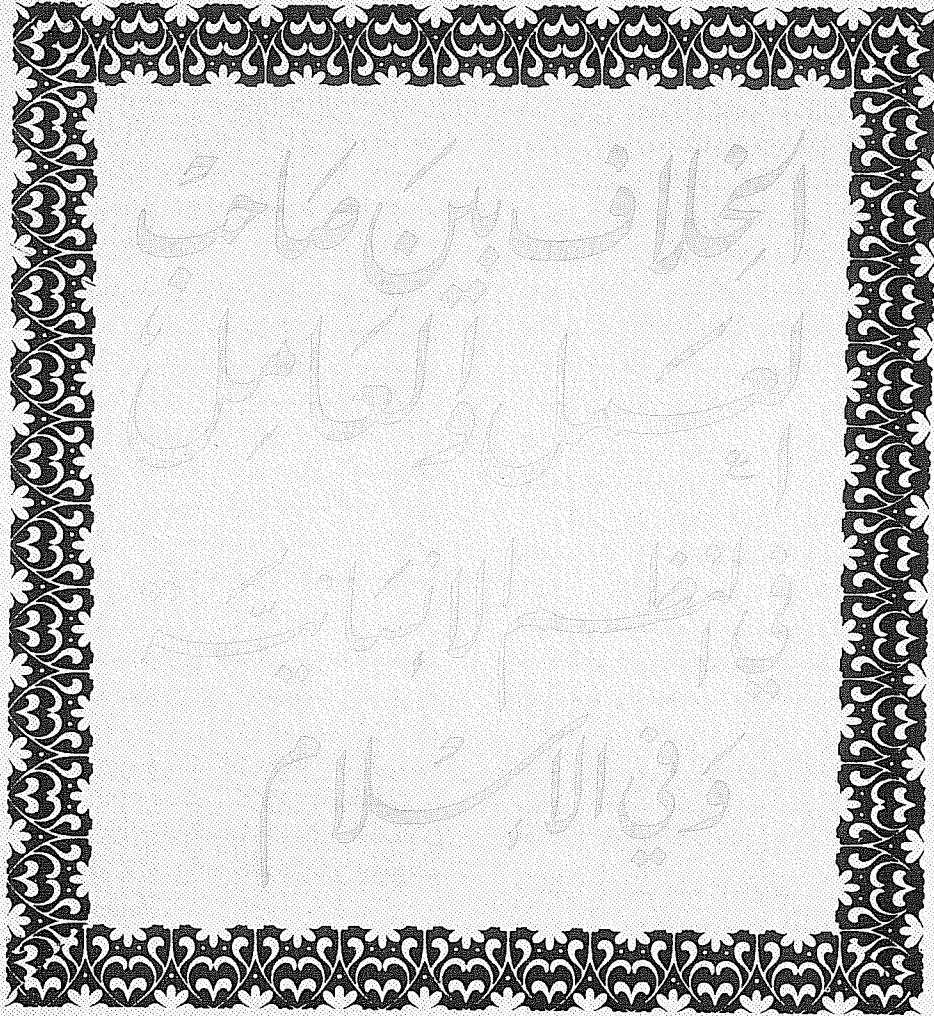 الخلاف بين صاحب
العمل والعامل
في النظم
وفي الإسلام